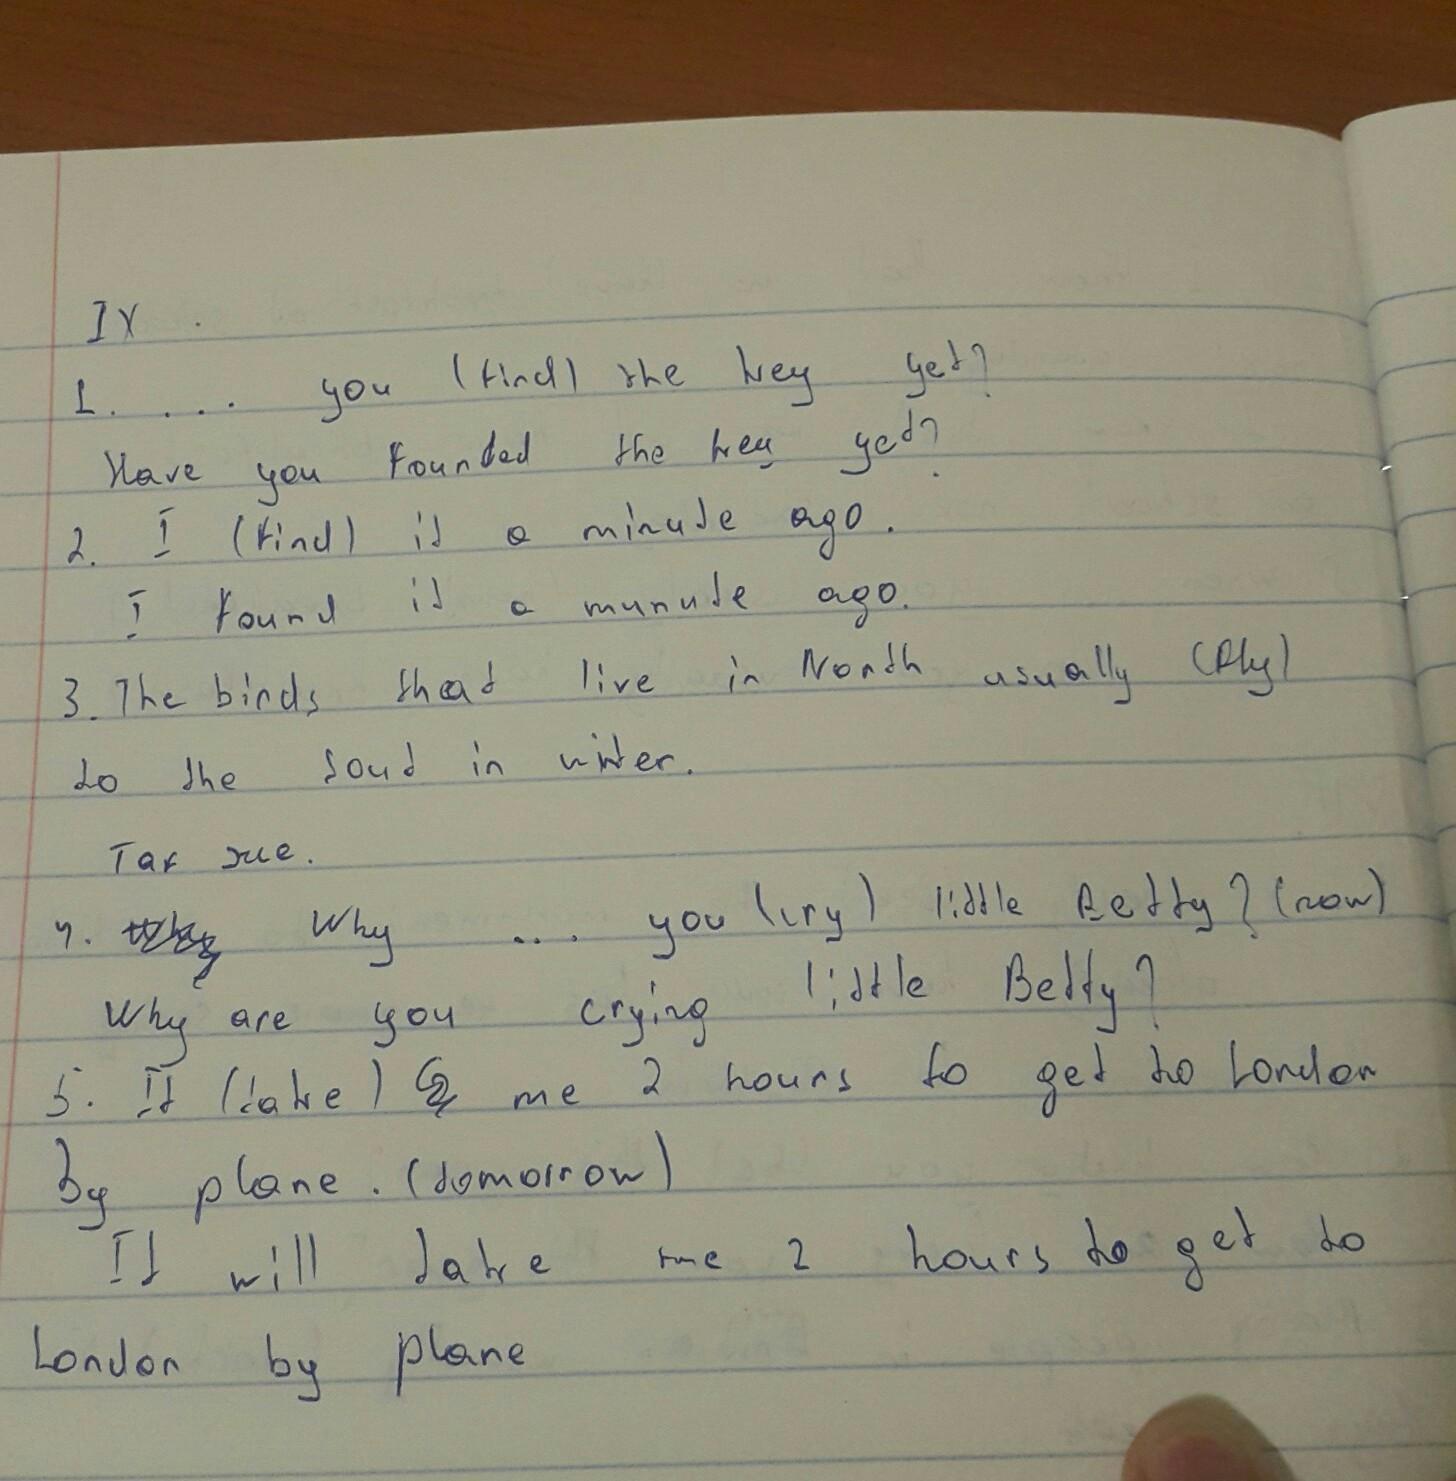 IV.
1. .... you (find) the key yet?
Have you founded the key yet?
2. I (find) it a minute ago.
I found it a munute ago.
3. The birds that live in North usually (fly)
to the sout in winter.
Так же.
4. Why .... you (cry) little Betty? (now)
Why are you crying little Betty?
5. It (take) me 2 hours to get to London
by plane. (tomorrow)
It will take me 2 hours to get to
London by plane